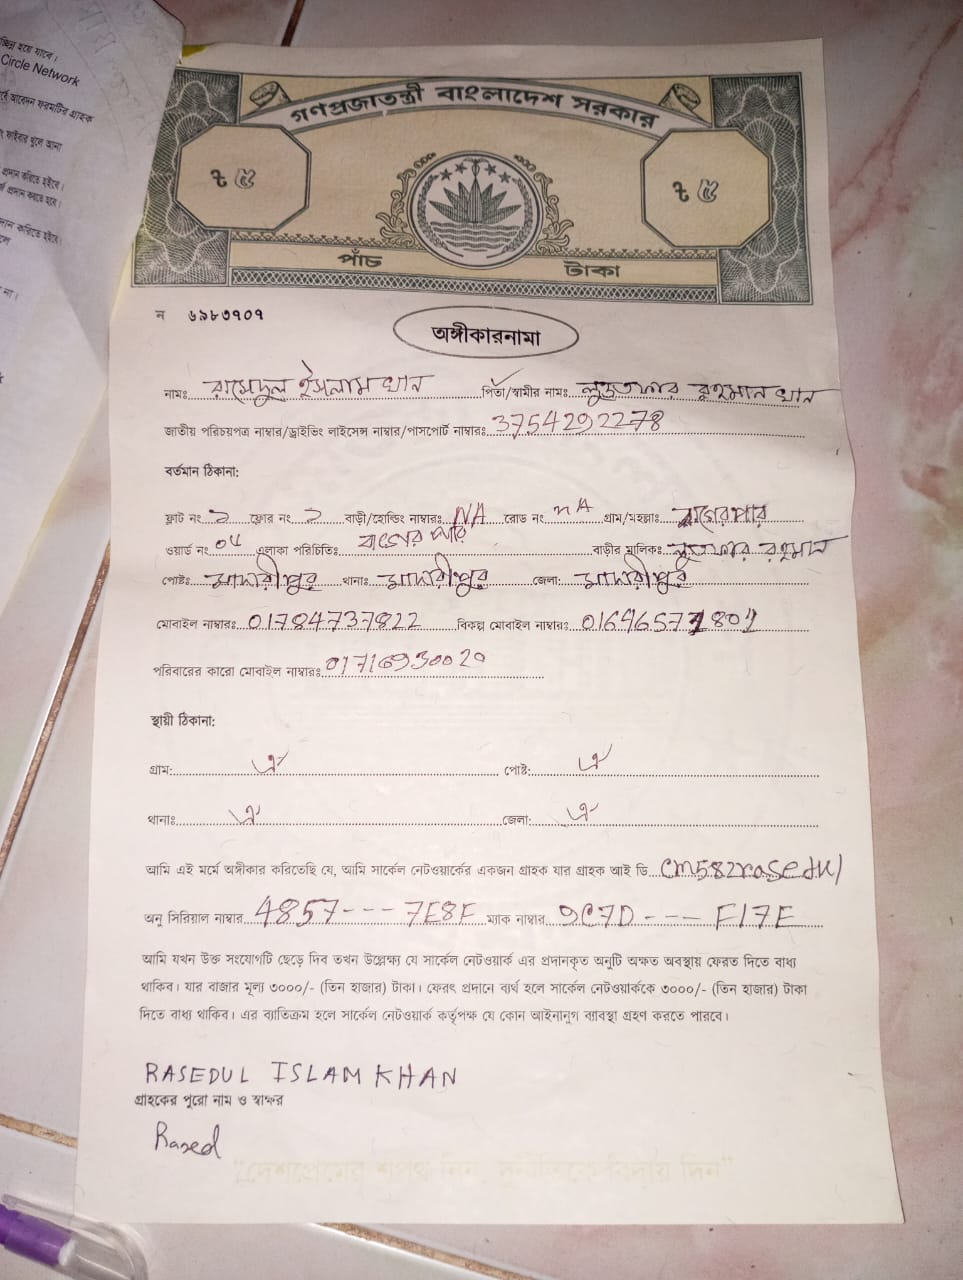 চ্ছিন্ন হয়ে যাবে।
Circle Network
আবেদন ফরমটির গ্রাহক
ফাইবার খুলে আনা
প্রদান করিতে হইবে।
প্রদান করতে হবে।
প্রদান করিতে হইবে।
না।
গণপ্রজাতন্ত্রী বাংলাদেশ সরকার
৳ ৫ ৳ ৫
পাঁচ টাকা
ন ৬৯৮৩৭০৭
অঙ্গীকারনামা
নামঃ রাসেদুল ইসলাম খান পিতা/স্বামীর নামঃ লুতফার রহমান খান
জাতীয় পরিচয়পত্র নাম্বার/ড্রাইভিং লাইসেন্স নাম্বার/পাসপোর্ট নাম্বারঃ 3754292278
বর্তমান ঠিকানা:
ফ্লাট নং ১ ফ্লোর নং ১ বাড়ী/হোল্ডিং নাম্বারঃ NA রোড নং nA গ্রাম/মহল্লাঃ বাগেরপার
ওয়ার্ড নং 04 এলাকা পরিচিতিঃ বাগের পার বাড়ীর মালিকঃ লুতফার রহমান
পোষ্টঃ মাদারীপুর থানাঃ মাদারীপুর জেলা: মাদারীপুর
মোবাইল নাম্বারঃ 01784737822 বিকল্প মোবাইল নাম্বারঃ 01646571801
পরিবারের কারো মোবাইল নাম্বারঃ 01716930020
স্থায়ী ঠিকানা:
গ্রাম: ঐ পোষ্ট: ঐ
থানাঃ ঐ জেলা: ঐ
আমি এই মর্মে অঙ্গীকার করিতেছি যে, আমি সার্কেল নেটওয়ার্কের একজন গ্রাহক যার গ্রাহক আই ডি cm582rasedul
অনু সিরিয়াল নাম্বার 4857---7E8F ম্যাক নাম্বার 9C7D---F17E
আমি যখন উক্ত সংযোগটি ছেড়ে দিব তখন উল্লেক্ষ্য যে সার্কেল নেটওয়ার্ক এর প্রদানকৃত অনুটি অক্ষত অবস্থায় ফেরত দিতে বাধ্য
থাকিব। যার বাজার মূল্য ৩০০০/- (তিন হাজার) টাকা। ফেরৎ প্রদানে ব্যর্থ হলে সার্কেল নেটওয়ার্ককে ৩০০০/- (তিন হাজার) টাকা
দিতে বাধ্য থাকিব। এর ব্যতিক্রম হলে সার্কেল নেটওয়ার্ক কর্তৃপক্ষ যে কোন আইনানুগ ব্যাবস্থা গ্রহণ করতে পারবে।
RASEDUL ISLAM KHAN
গ্রাহকের পুরো নাম ও স্বাক্ষর
Rased
"দেশপ্রেমের শপথ নিন, দুর্নীতিকে বিদায় দিন"